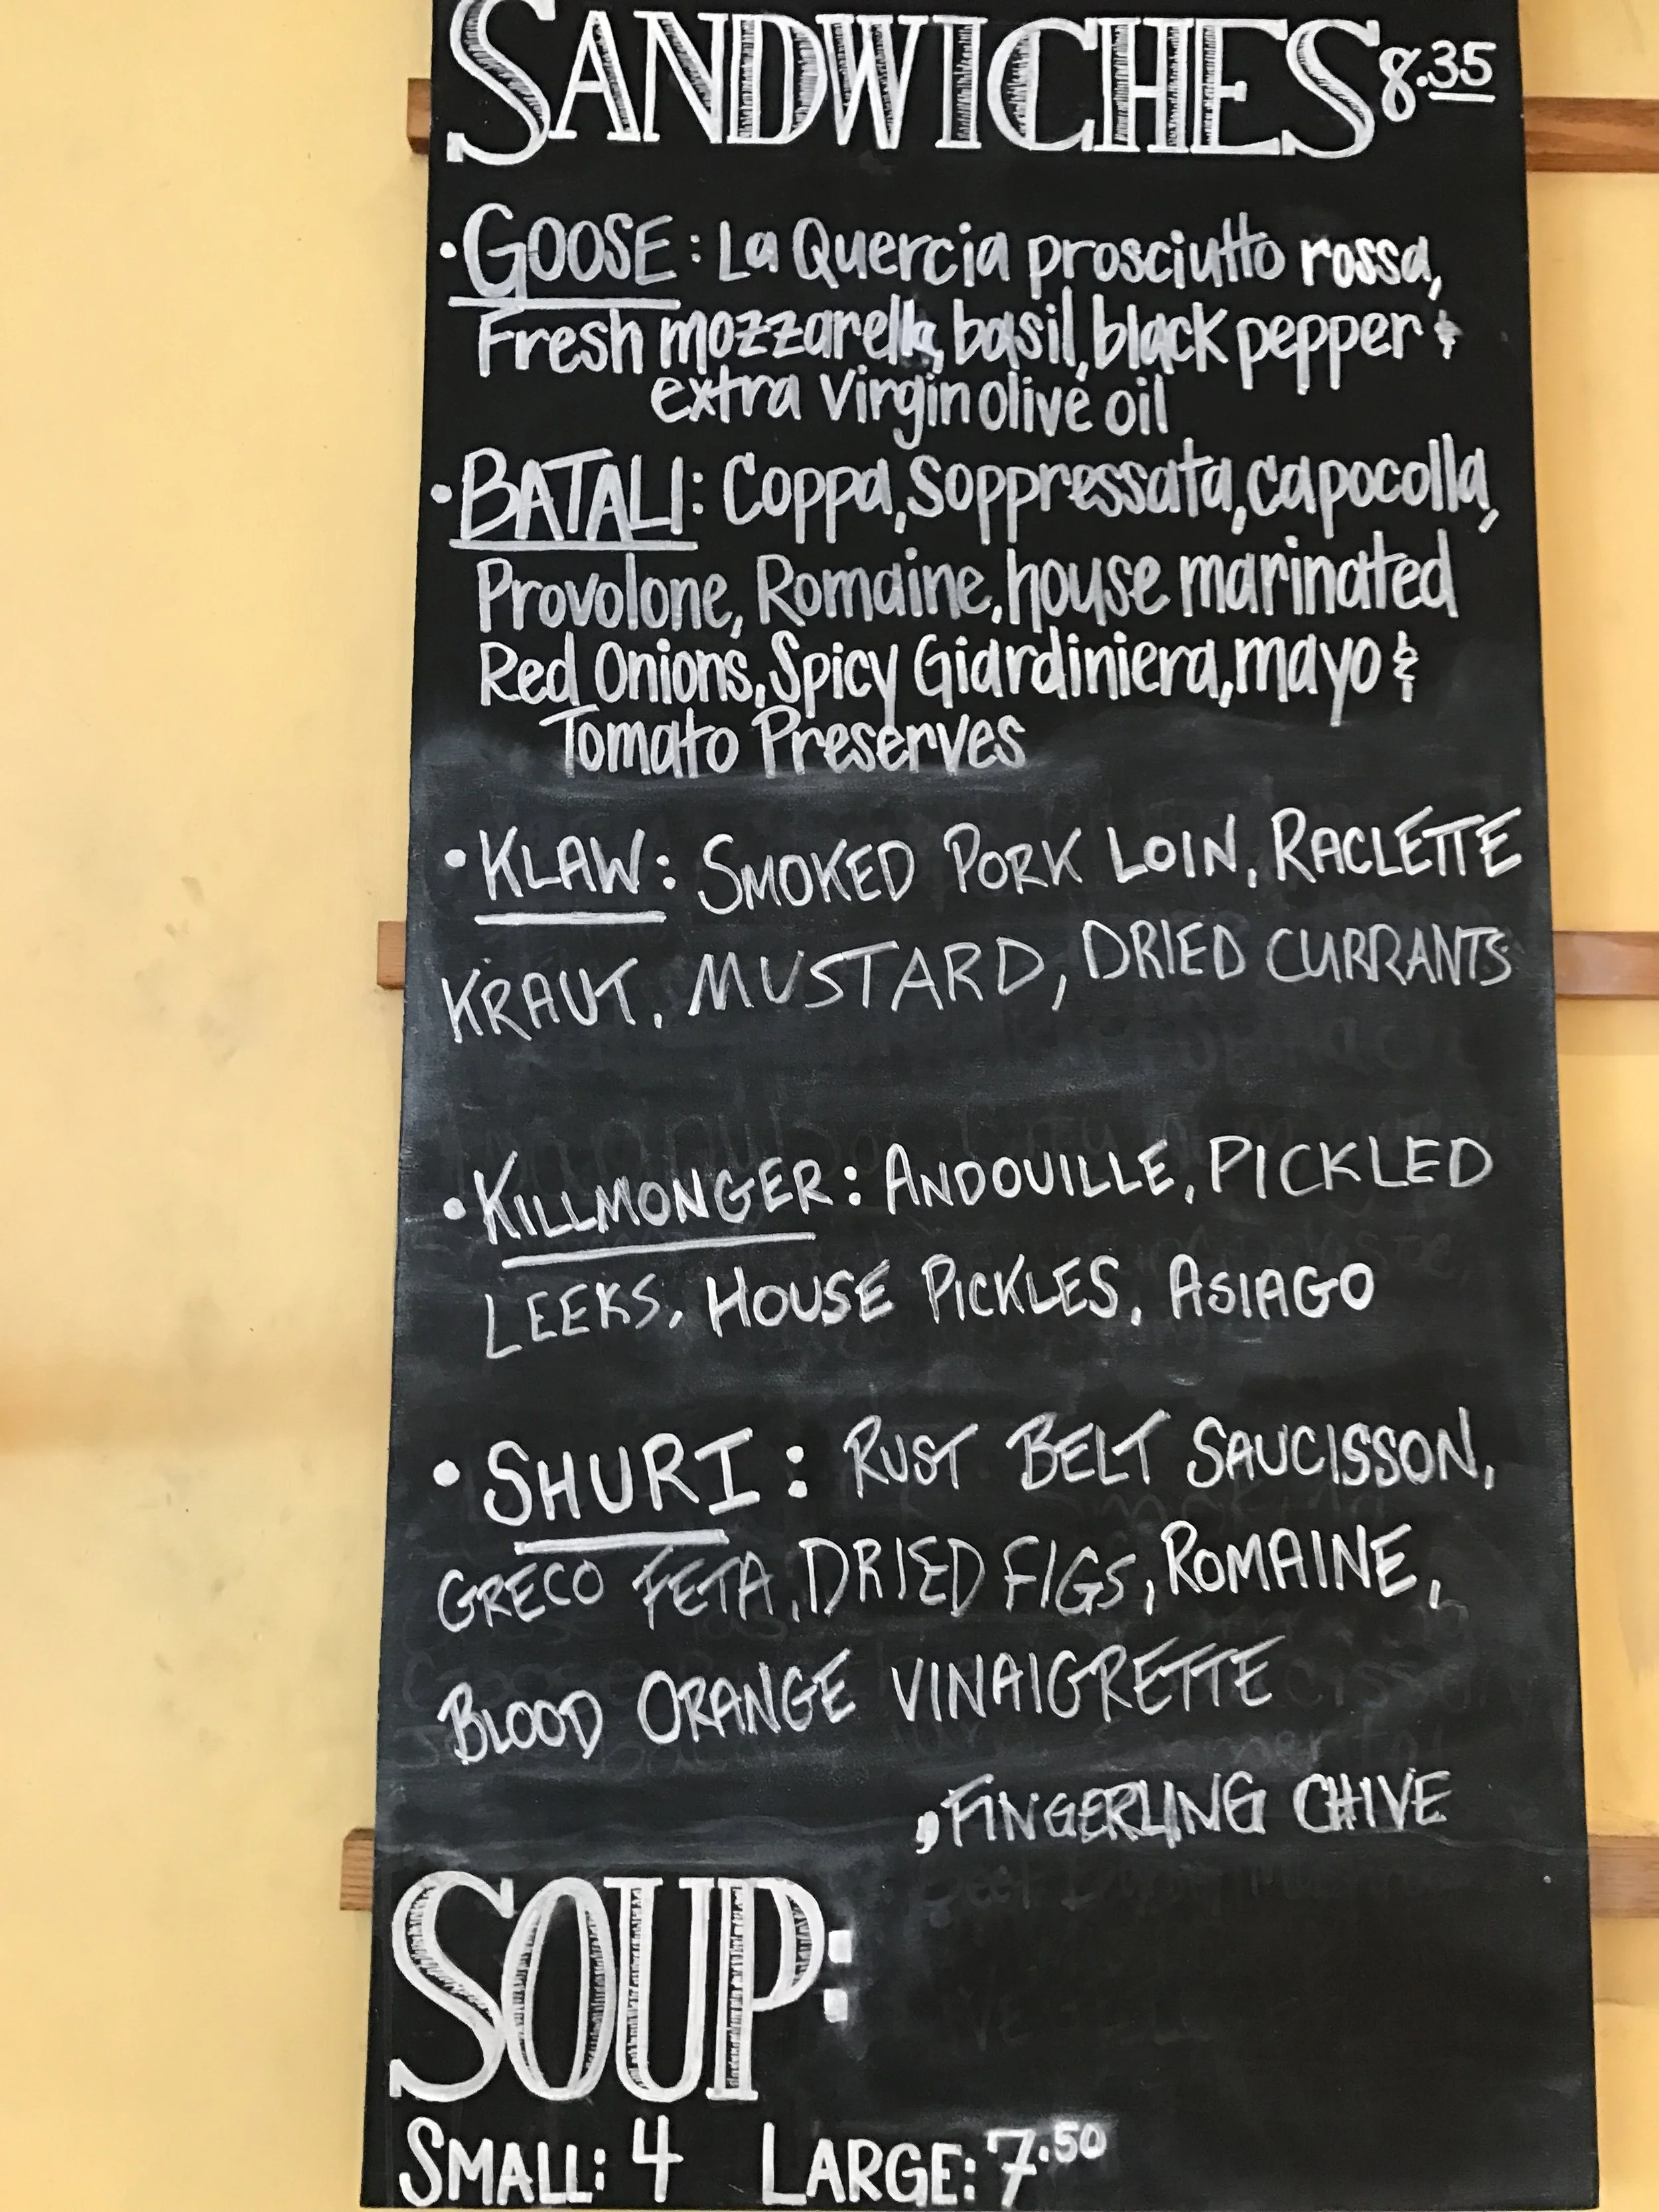 SANDWICHES 8.35
• GOOSE: La Quercia prosciutto rossa,
Fresh mozzarella, basil, black pepper &
extra virgin olive oil
• BATALI: Coppa, Soppressata, capocolla,
Provolone, Romaine, house marinated
Red Onions, Spicy Giardiniera, mayo &
Tomato Preserves
• KLAW: SMOKED PORK LOIN, RACLETTE
KRAUT, MUSTARD, DRIED CURRANTS
• KILLMONGER: ANDOUILLE, PICKLED
LEEKS, HOUSE PICKLES, ASIAGO
• SHURI: RUST BELT SAUCISSON,
GRECO FETA, DRIED FIGS, ROMAINE,
BLOOD ORANGE VINAIGRETTE
, FINGERLING CHIVE
SOUP:
SMALL: 4 LARGE: 7.50